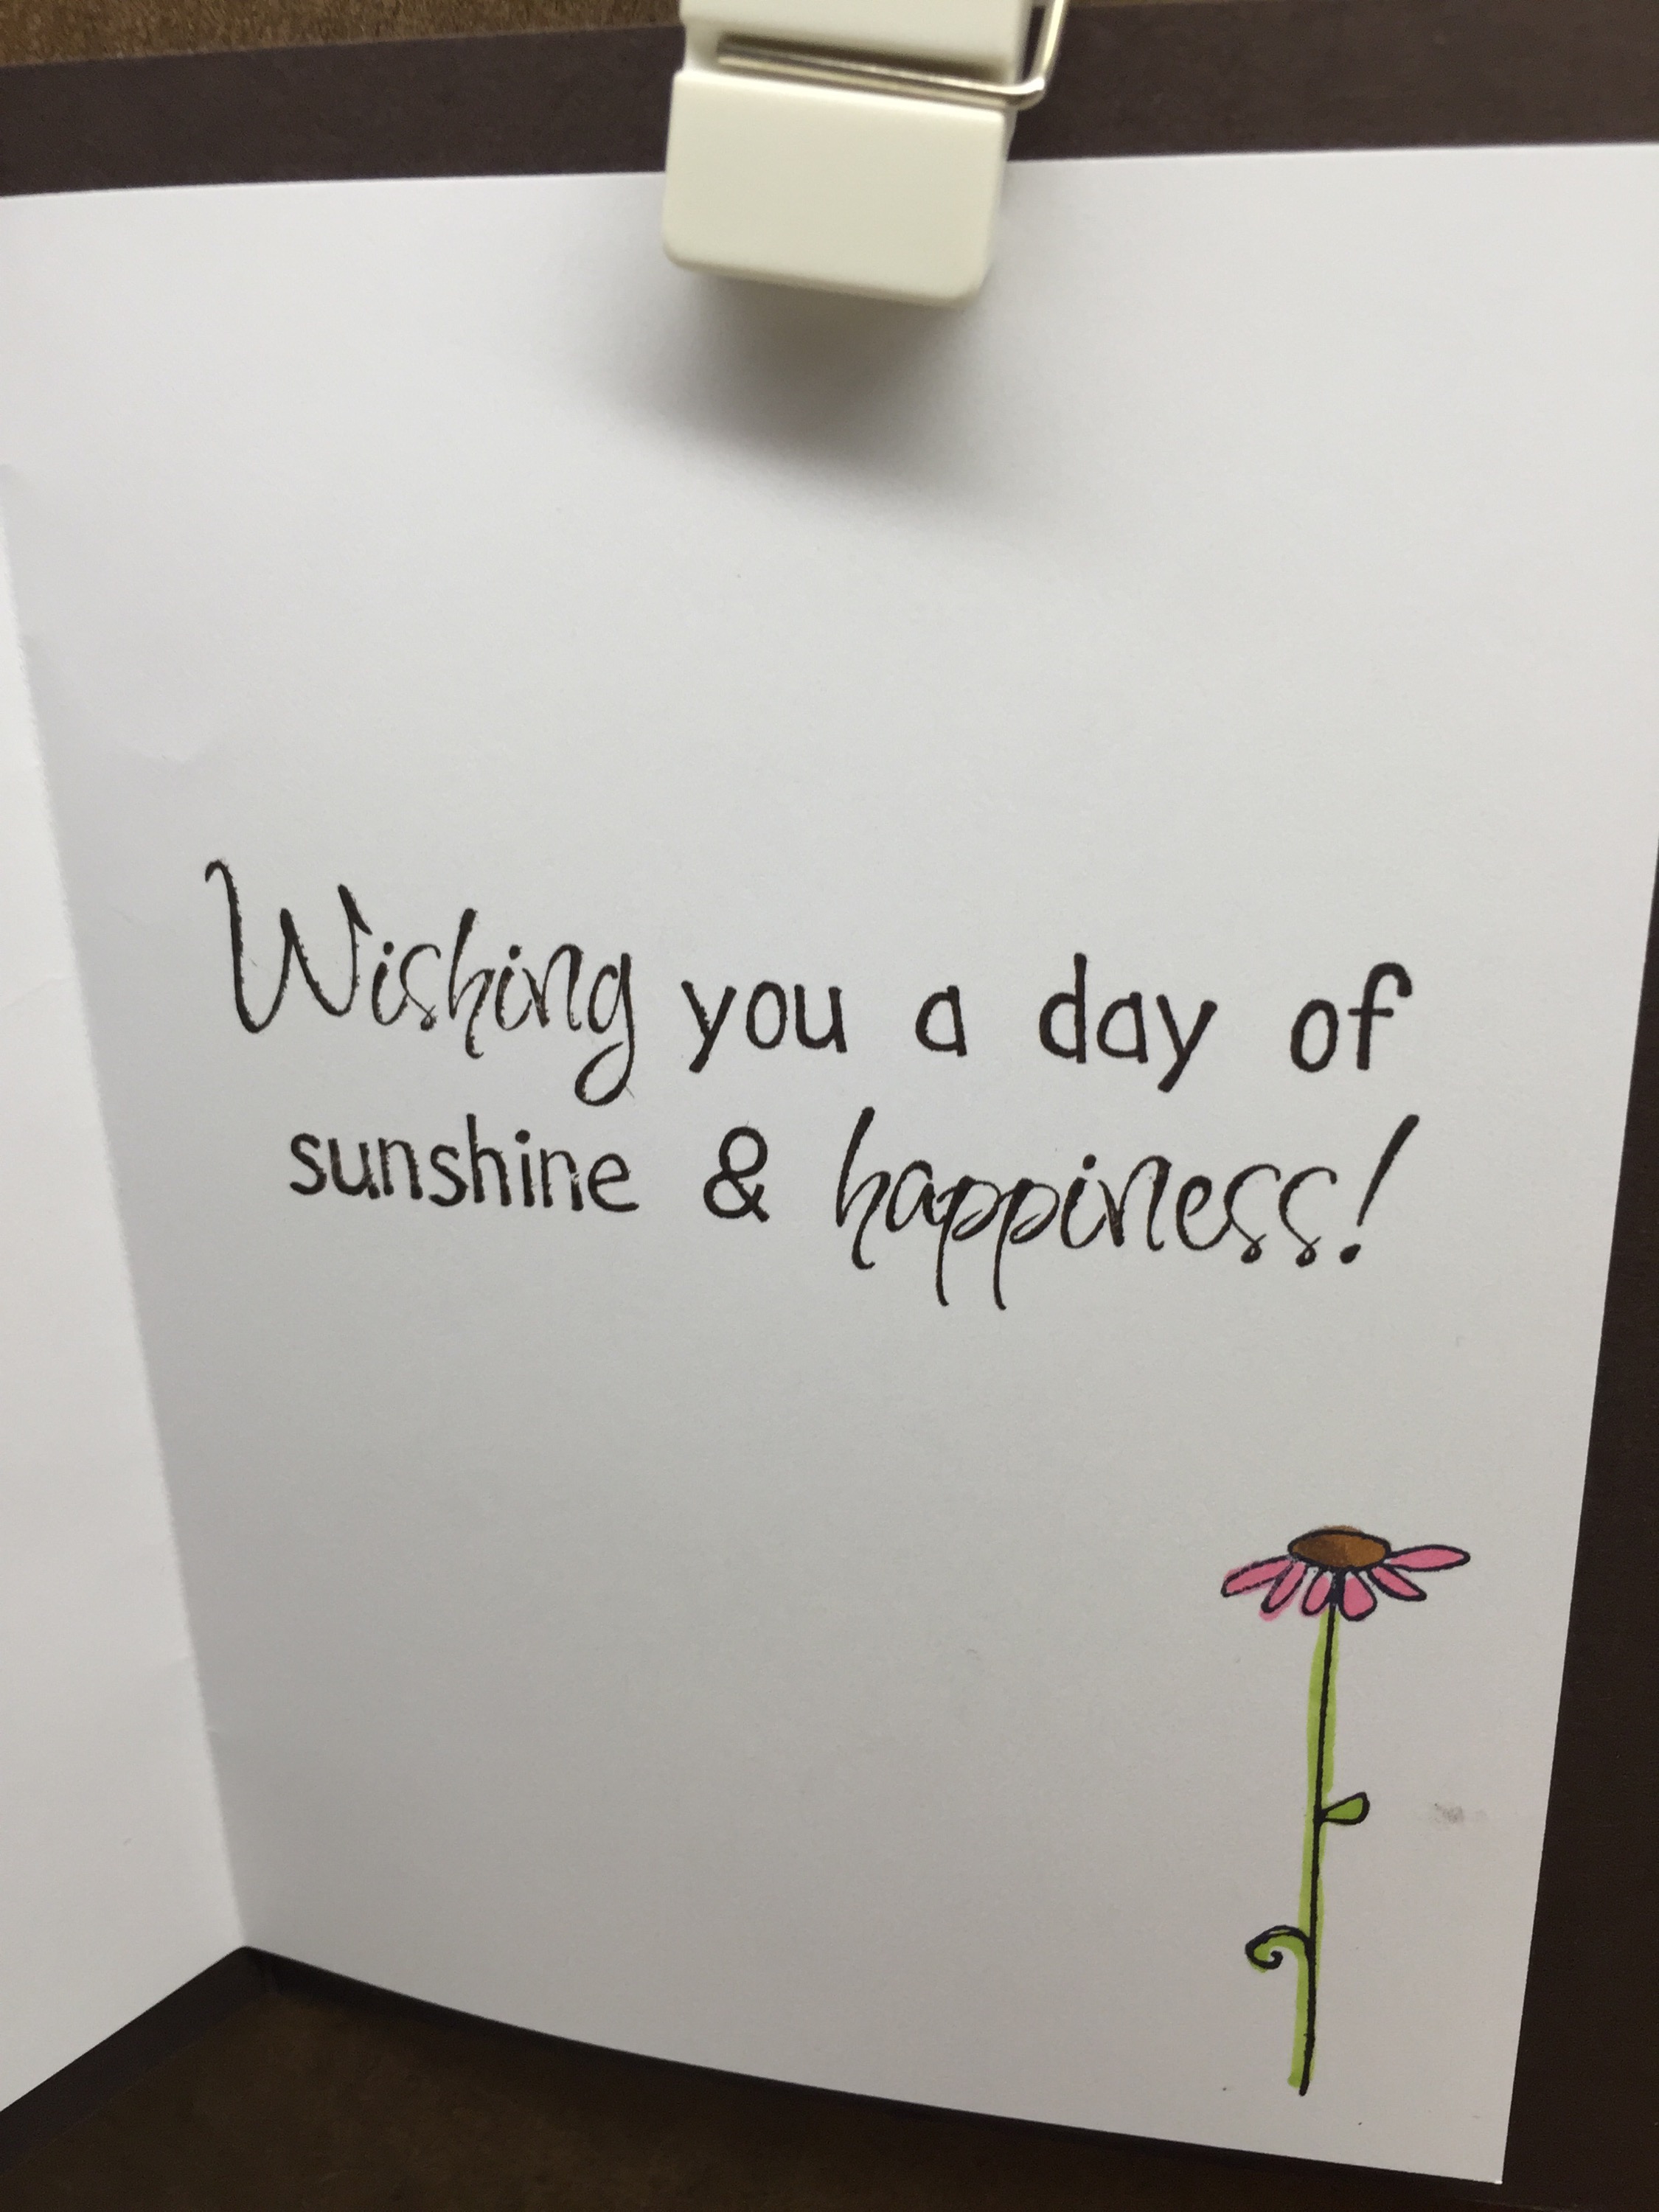 Wishing you a day of
sunshine & happiness!